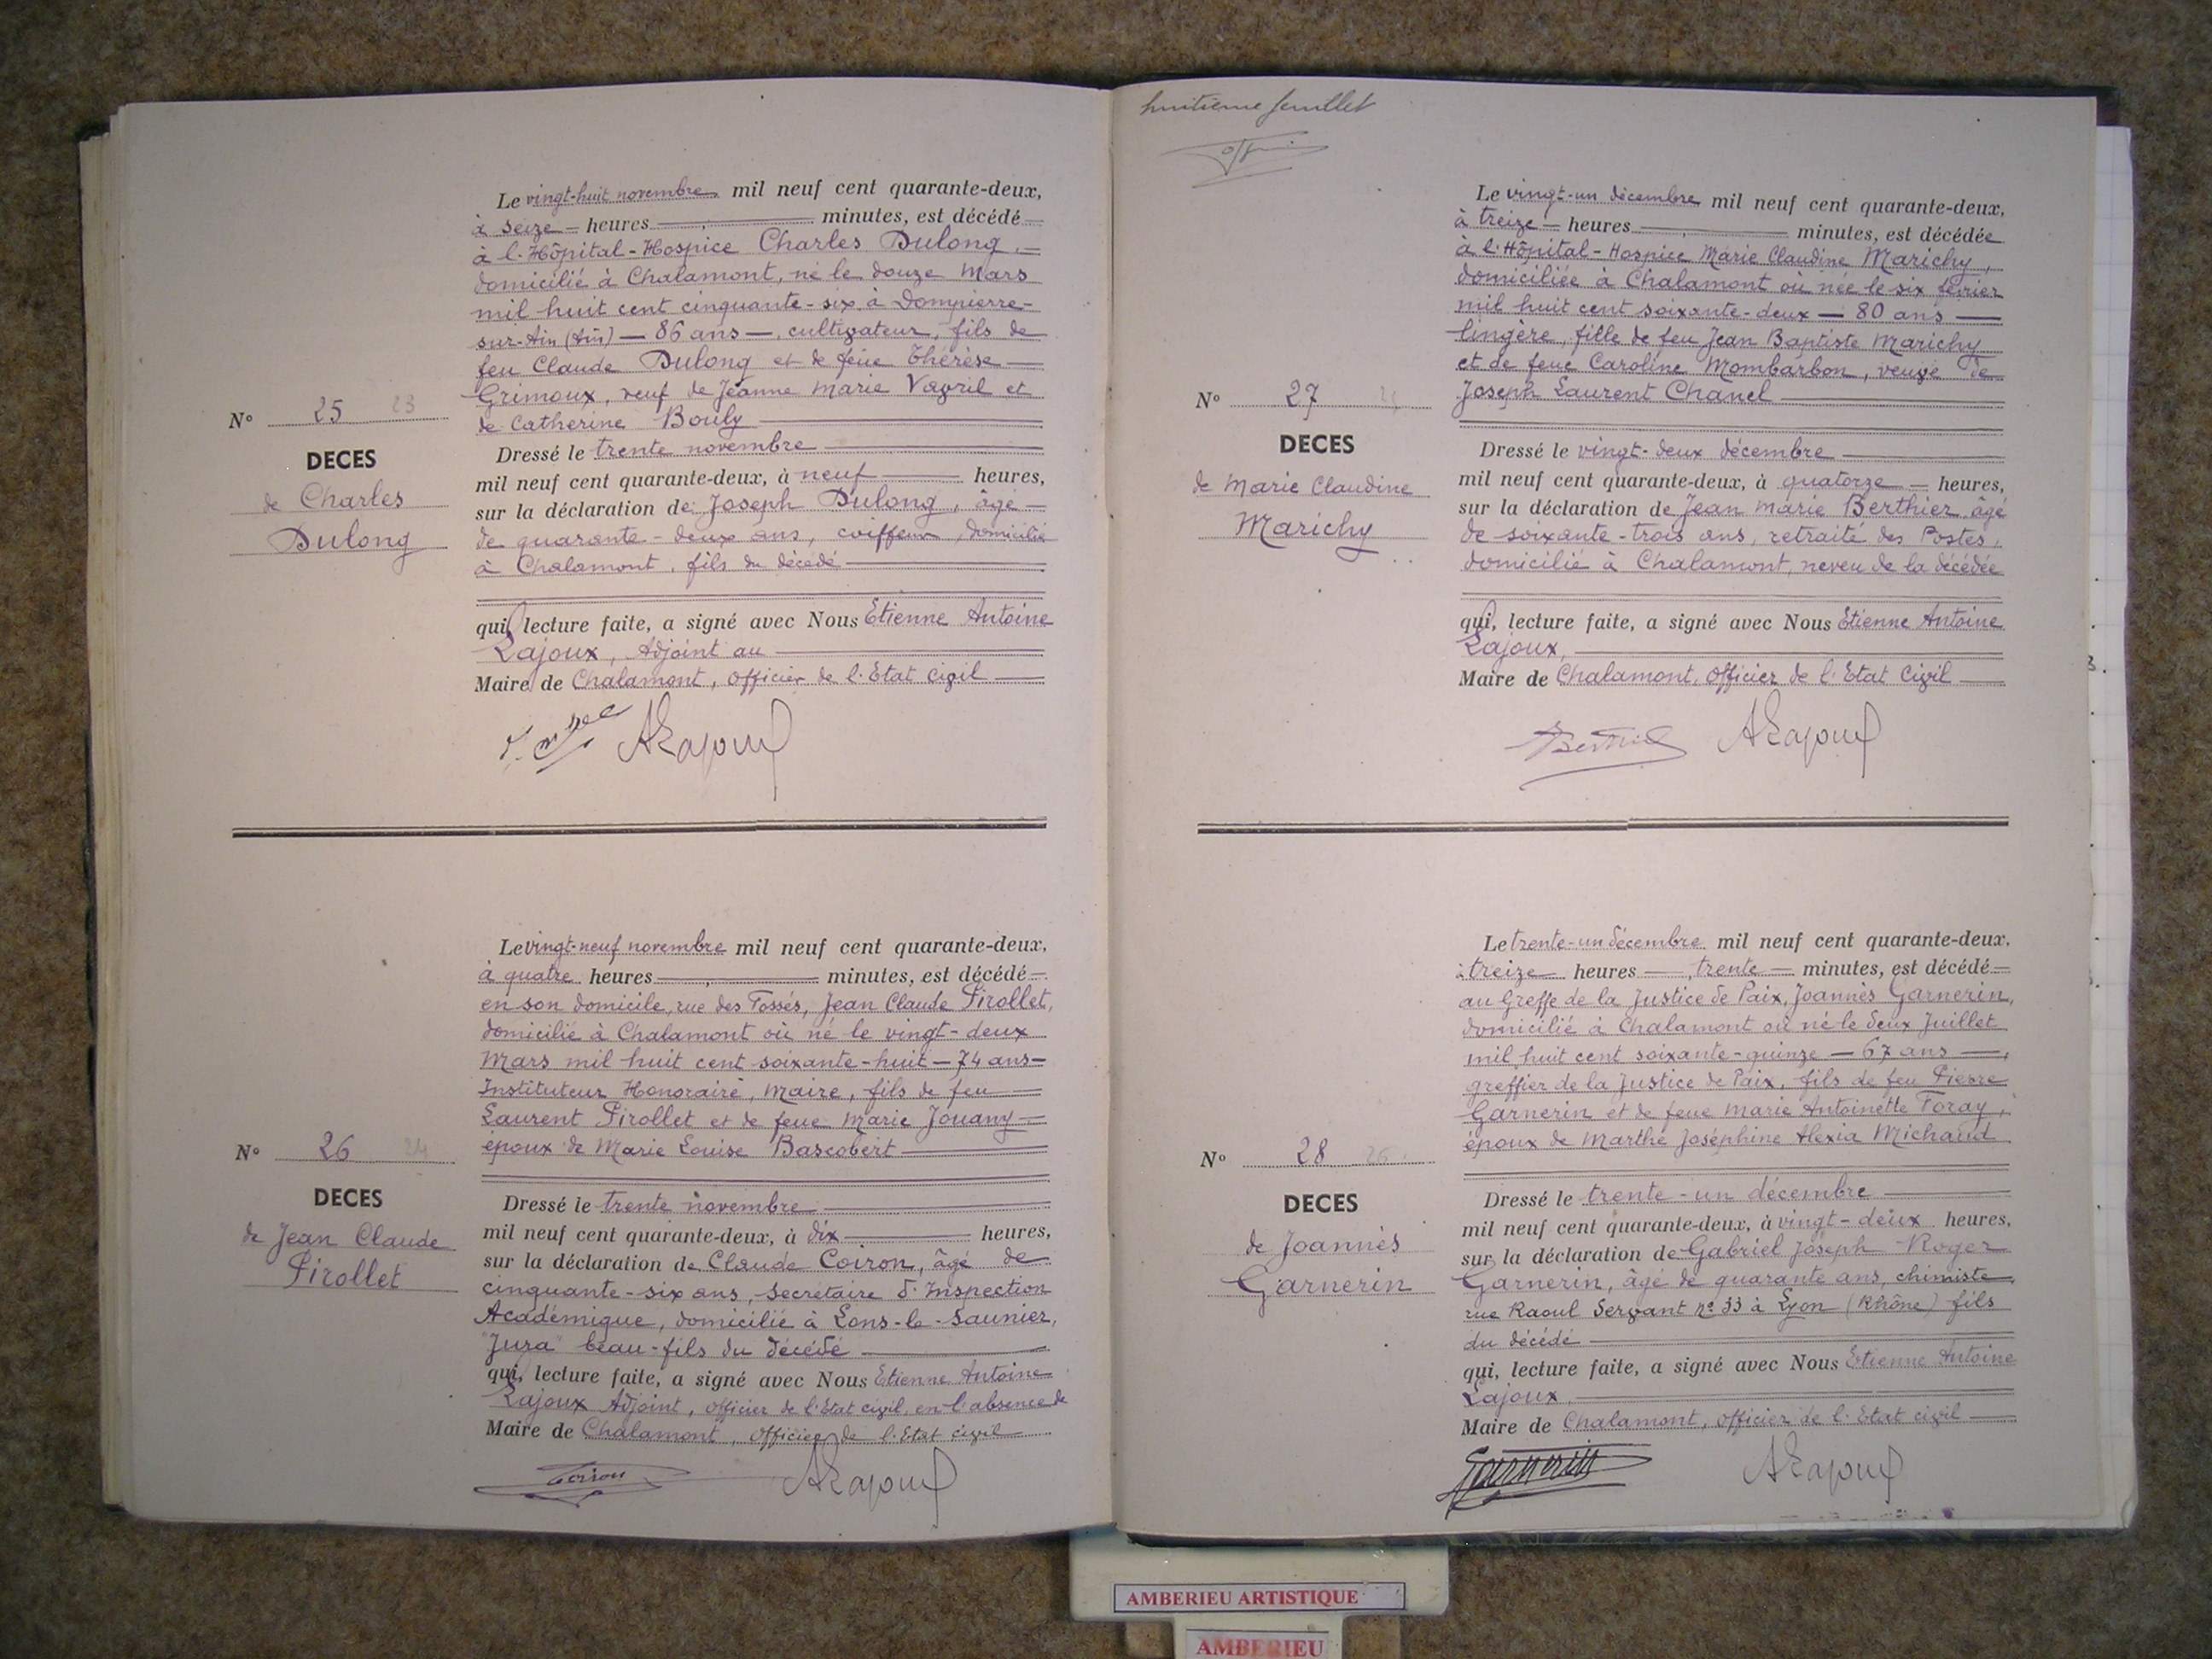 Le vingt-huit novembre mil neuf cent quarante-deux,
à seize heures minutes, est décédé
à l'Hôpital-Hospice Charles Dulong,
domicilié à Chalamont, né le douze Mars
mil huit cent cinquante-six à Dompierre-
sur-Ain (Ain) — 86 ans —, cultivateur, fils de
feu Claude Dulong et de feue Thérèse
Grimoux, veuf de Jeanne Marie Vavril et
de Catherine Bouly
N° 25 23
DECES
de Charles
Dulong
Dressé le trente novembre
mil neuf cent quarante-deux, à neuf heures,
sur la déclaration de Joseph Dulong, âgé
de quarante-deux ans, coiffeur, domicilié
à Chalamont, fils du décédé
qui, lecture faite, a signé avec Nous Etienne Antoine
Lajoux, Adjoint au
Maire de Chalamont, officier de l'Etat Civil
ALajoux
Le vingt-neuf novembre mil neuf cent quarante-deux,
à quatre heures minutes, est décédé
en son domicile, rue des Fossés, Jean Claude Pirollet,
domicilié à Chalamont où né le vingt-deux
Mars mil huit cent soixante-huit — 74 ans —
Instituteur Honoraire, Maire, fils de feu
Laurent Pirollet et de feue Marie Jouany
époux de Marie Louise Bascobert
N° 26 24
DECES
de Jean Claude
Pirollet
Dressé le trente novembre
mil neuf cent quarante-deux, à dix heures,
sur la déclaration de Claude Coiron, âgé de
cinquante-six ans, secrétaire d'Inspection
Académique, domicilié à Lons-le-Saunier,
"Jura" beau-fils du décédé
qui, lecture faite, a signé avec Nous Etienne Antoine
Lajoux Adjoint, officier de l'Etat civil, en l'absence de
Maire de Chalamont, officier de l'Etat civil
Coiron ALajoux
huitième feuillet
Le vingt-un décembre mil neuf cent quarante-deux,
à treize heures minutes, est décédée
à l'Hôpital-Hospice Marie Claudine Marichy,
domiciliée à Chalamont où née le six février
mil huit cent soixante-deux — 80 ans —
lingère, fille de feu Jean Baptiste Marichy
et de feue Caroline Mombarbon, veuve de
Joseph Laurent Chanel
N° 27
DECES
de Marie Claudine
Marichy
Dressé le vingt-deux décembre
mil neuf cent quarante-deux, à quatorze heures,
sur la déclaration de Jean Marie Berthier, âgé
de soixante-trois ans, retraité des Postes,
domicilié à Chalamont, neveu de la décédée
qui, lecture faite, a signé avec Nous Etienne Antoine
Lajoux,
Maire de Chalamont, officier de l'Etat Civil
ALajoux
Le trente-un décembre mil neuf cent quarante-deux,
à treize heures trente minutes, est décédé
au Greffe de la Justice de Paix, Joannès Garnerin,
domicilié à Chalamont où né le deux Juillet
mil huit cent soixante-quinze — 67 ans —,
greffier de la Justice de Paix, fils de feu Pierre
Garnerin et de feue Marie Antoinette Foray,
époux de Marthe Joséphine Alexia Michaud
N° 28 26
DECES
de Joannès
Garnerin
Dressé le trente-un décembre
mil neuf cent quarante-deux, à vingt-deux heures,
sur la déclaration de Gabriel Joseph Roger
Garnerin, âgé de quarante ans, chimiste,
rue Raoul Servant n° 33 à Lyon (Rhône) fils
du décédé
qui, lecture faite, a signé avec Nous Etienne Antoine
Lajoux,
Maire de Chalamont, officier de l'Etat civil
Garnerin ALajoux
AMBERIEU ARTISTIQUE
AMBERIEU